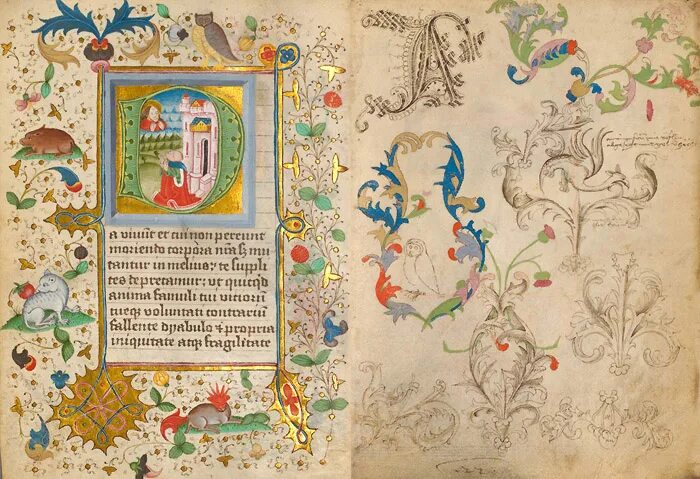 D
a viuūt et cui non pereunt
moriendo corpora nr̄a sꝫ mu
tantur in melius: te suppli
ces deprecamur: ut quicq̄d
anima famuli tui victoriū
tueqꝫ voluntati contrariū
fallente dyabulo & propria
iniquitate atqꝫ fragilitate
A